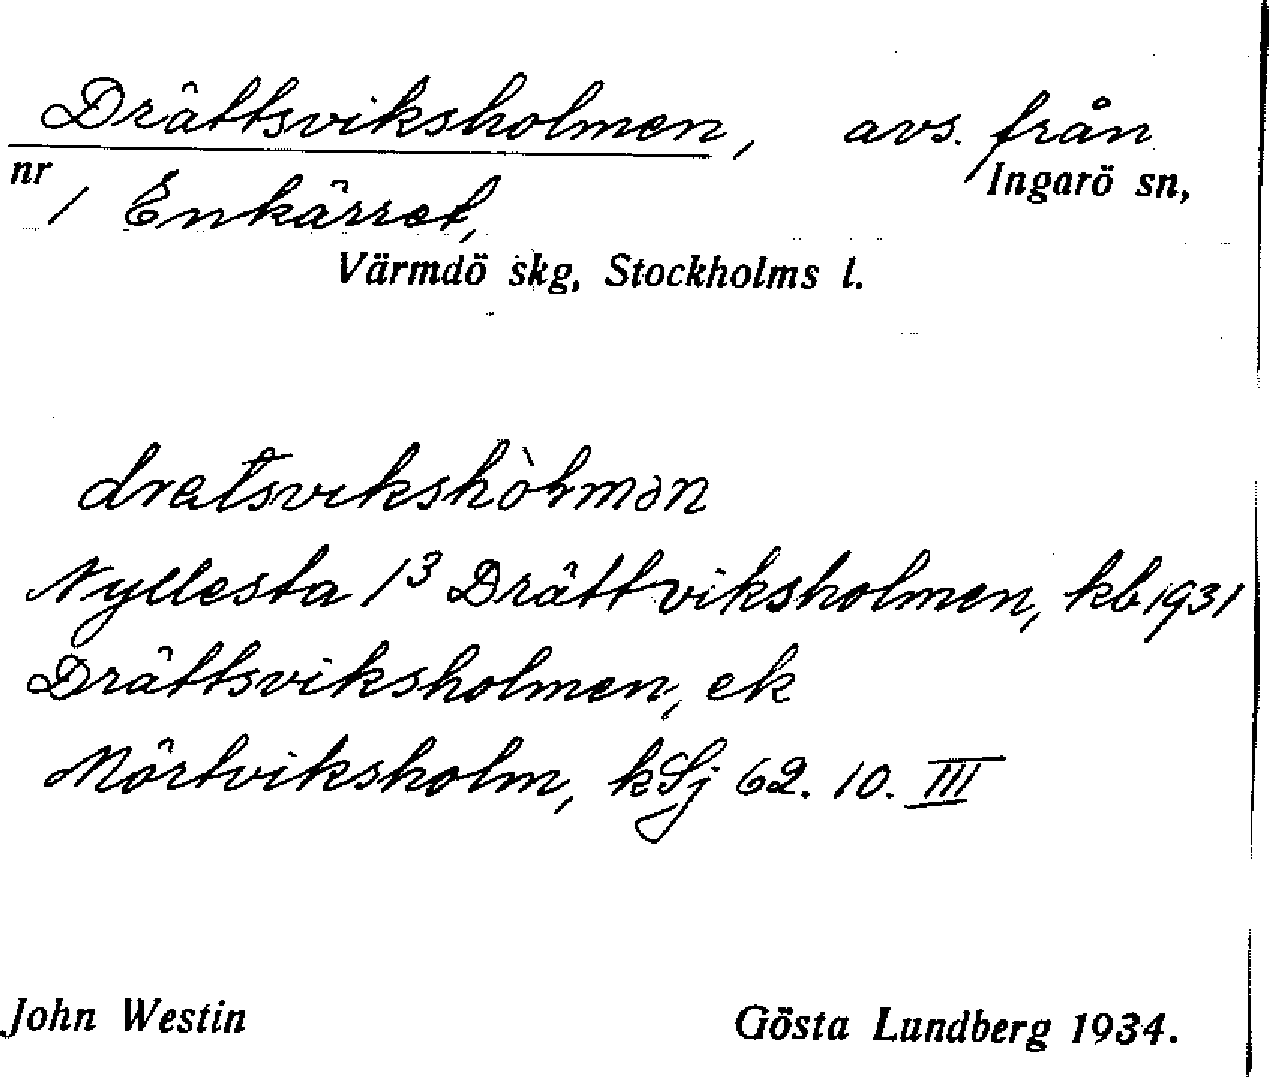 Drättsviksholmen, avs. från
nr 1 Enkärret, Ingarö sn,
Värmdö skg, Stockholms l.
Nyllesta 1³ Drättviksholmen, kb 1931
Drättsviksholmen, ek
Mörtviksholm, kSj 62. 10. III
John Westin Gösta Lundberg 1934.